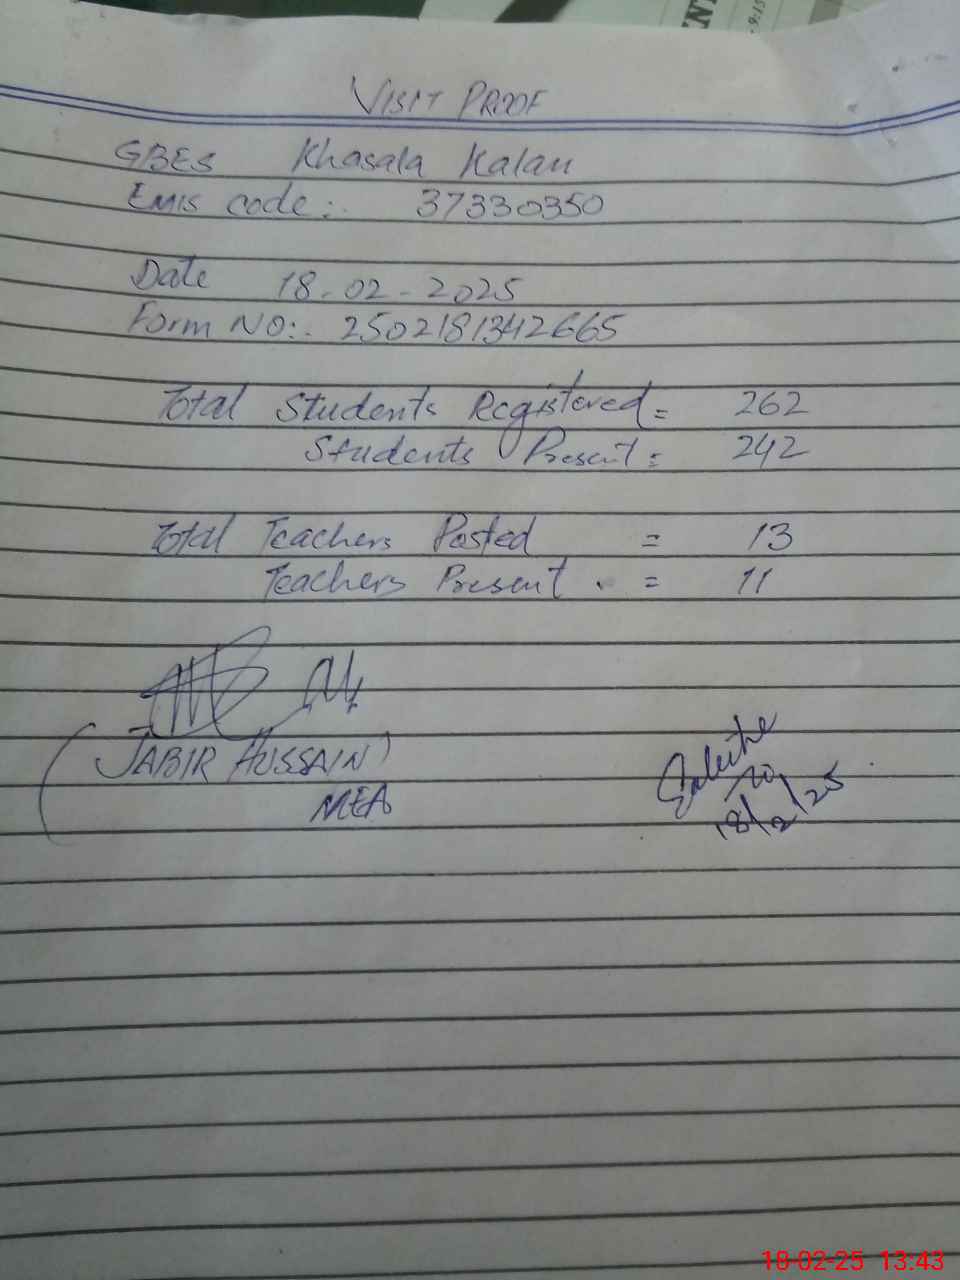 VISIT PROOF
GBES Khasala Kalan
EMIS code:. 37330350
Date 18-02-2025
Form NO:. 2502181342665
Total Students Registered = 262
Students Present = 242
Total Teachers Posted = 13
Teachers Present . = 11
(JABIR HUSSAIN)
MEA
18/2/25
18-02-25 13:43